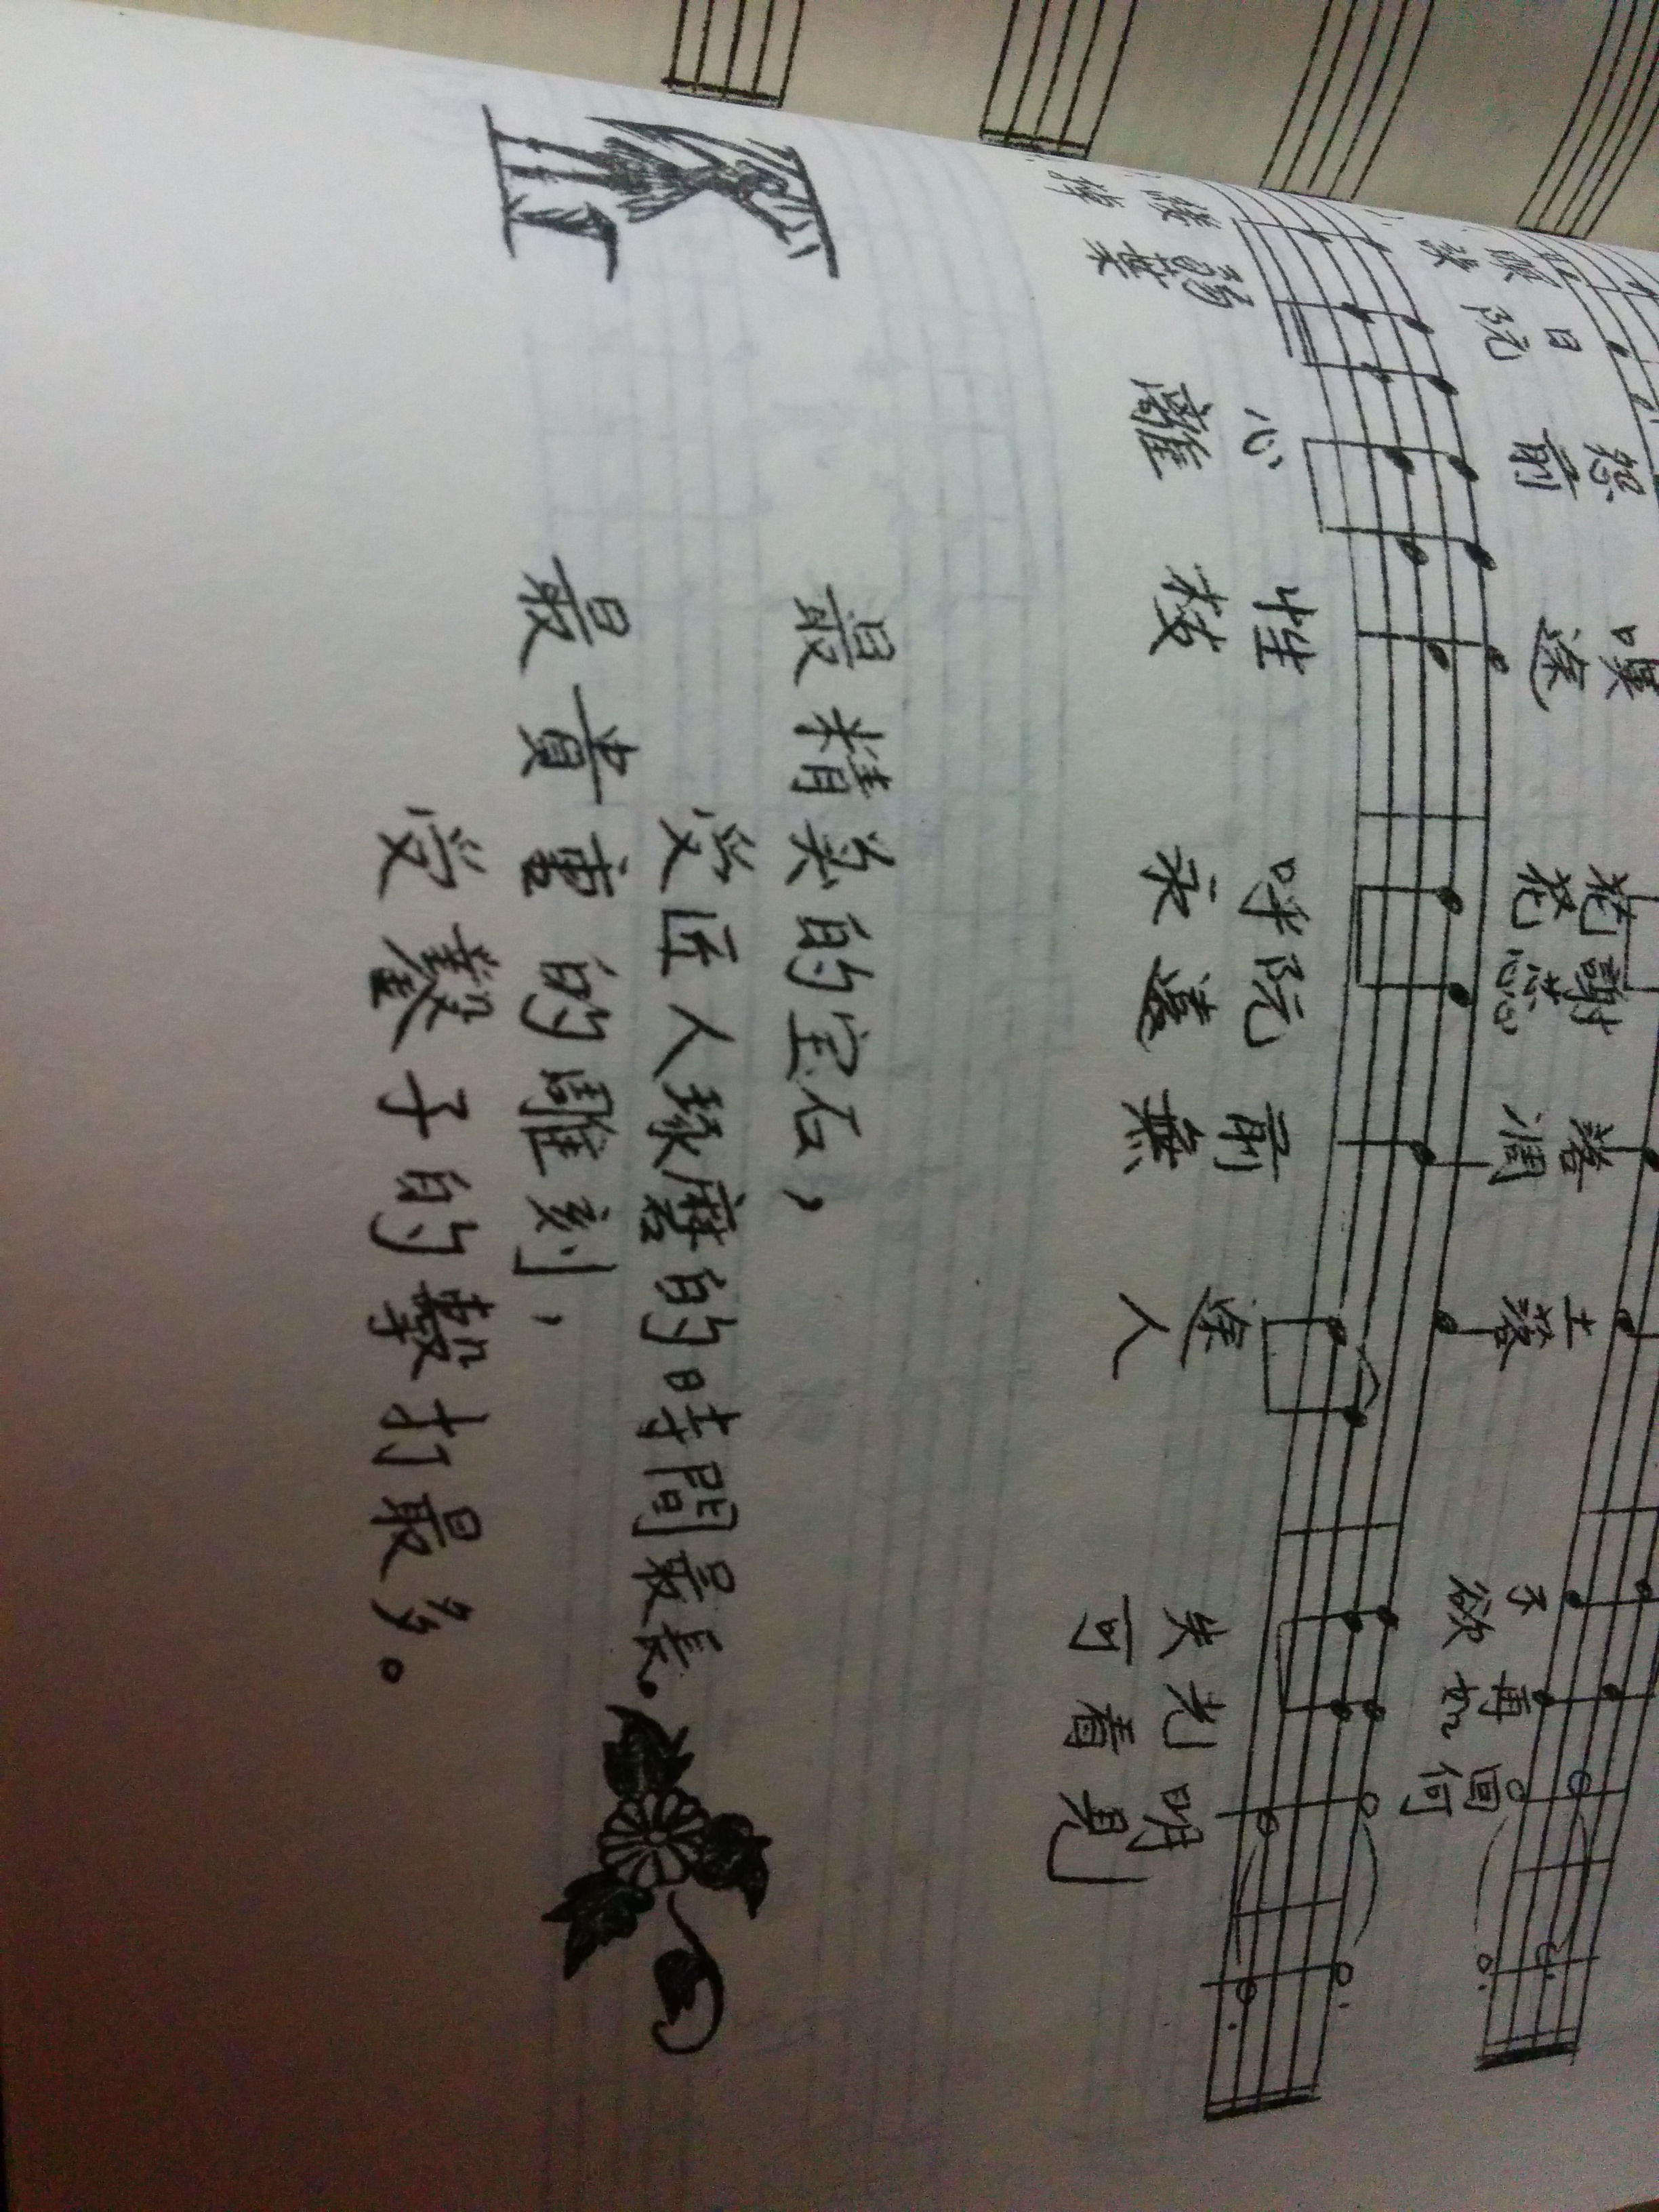 日怨嘆花謝落土不再回
誤阮前途花蕊凋落欲如何
弱心性呼阮前途失光明
葉離枝永遠無人可看見
最精美的宝石,
受匠人琢磨的時間最長。
最貴重的雕刻,
受鑿子的擊打最多。